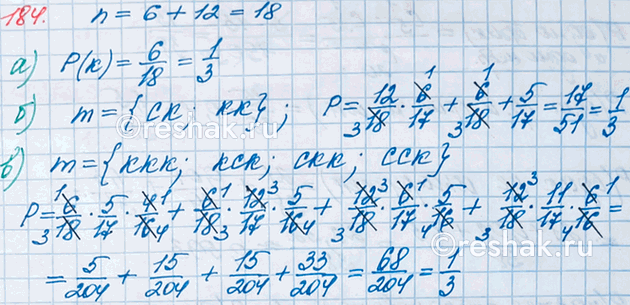 184. n = 6 + 12 = 18
а) P(к) = 6/18 = 1/3
б) m = {ск; кк}; P = 12/18 · 6/17 + 6/18 + 5/17 = 17/51 = 1/3
в) m = {ккк; кск; скк; сск}
P = 6/18 · 5/17 · 4/16 + 6/18 · 12/17 · 5/16 + 12/18 · 6/17 · 5/16 + 12/18 · 11/17 · 6/16 =
= 5/204 + 15/204 + 15/204 + 33/204 = 68/204 = 1/3
reshak.ru